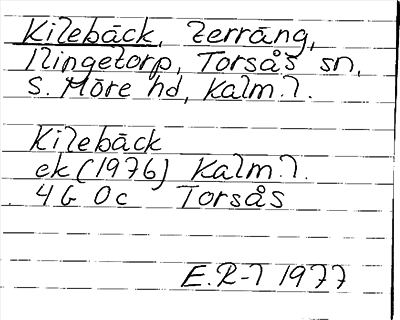 Kilebäck, terräng,
Ilingetorp, Torsås sn,
S. Möre hd, Kalm. l.
Kilebäck
ek (1976) Kalm. l.
4 G 0 c Torsås
E.R-l 1977